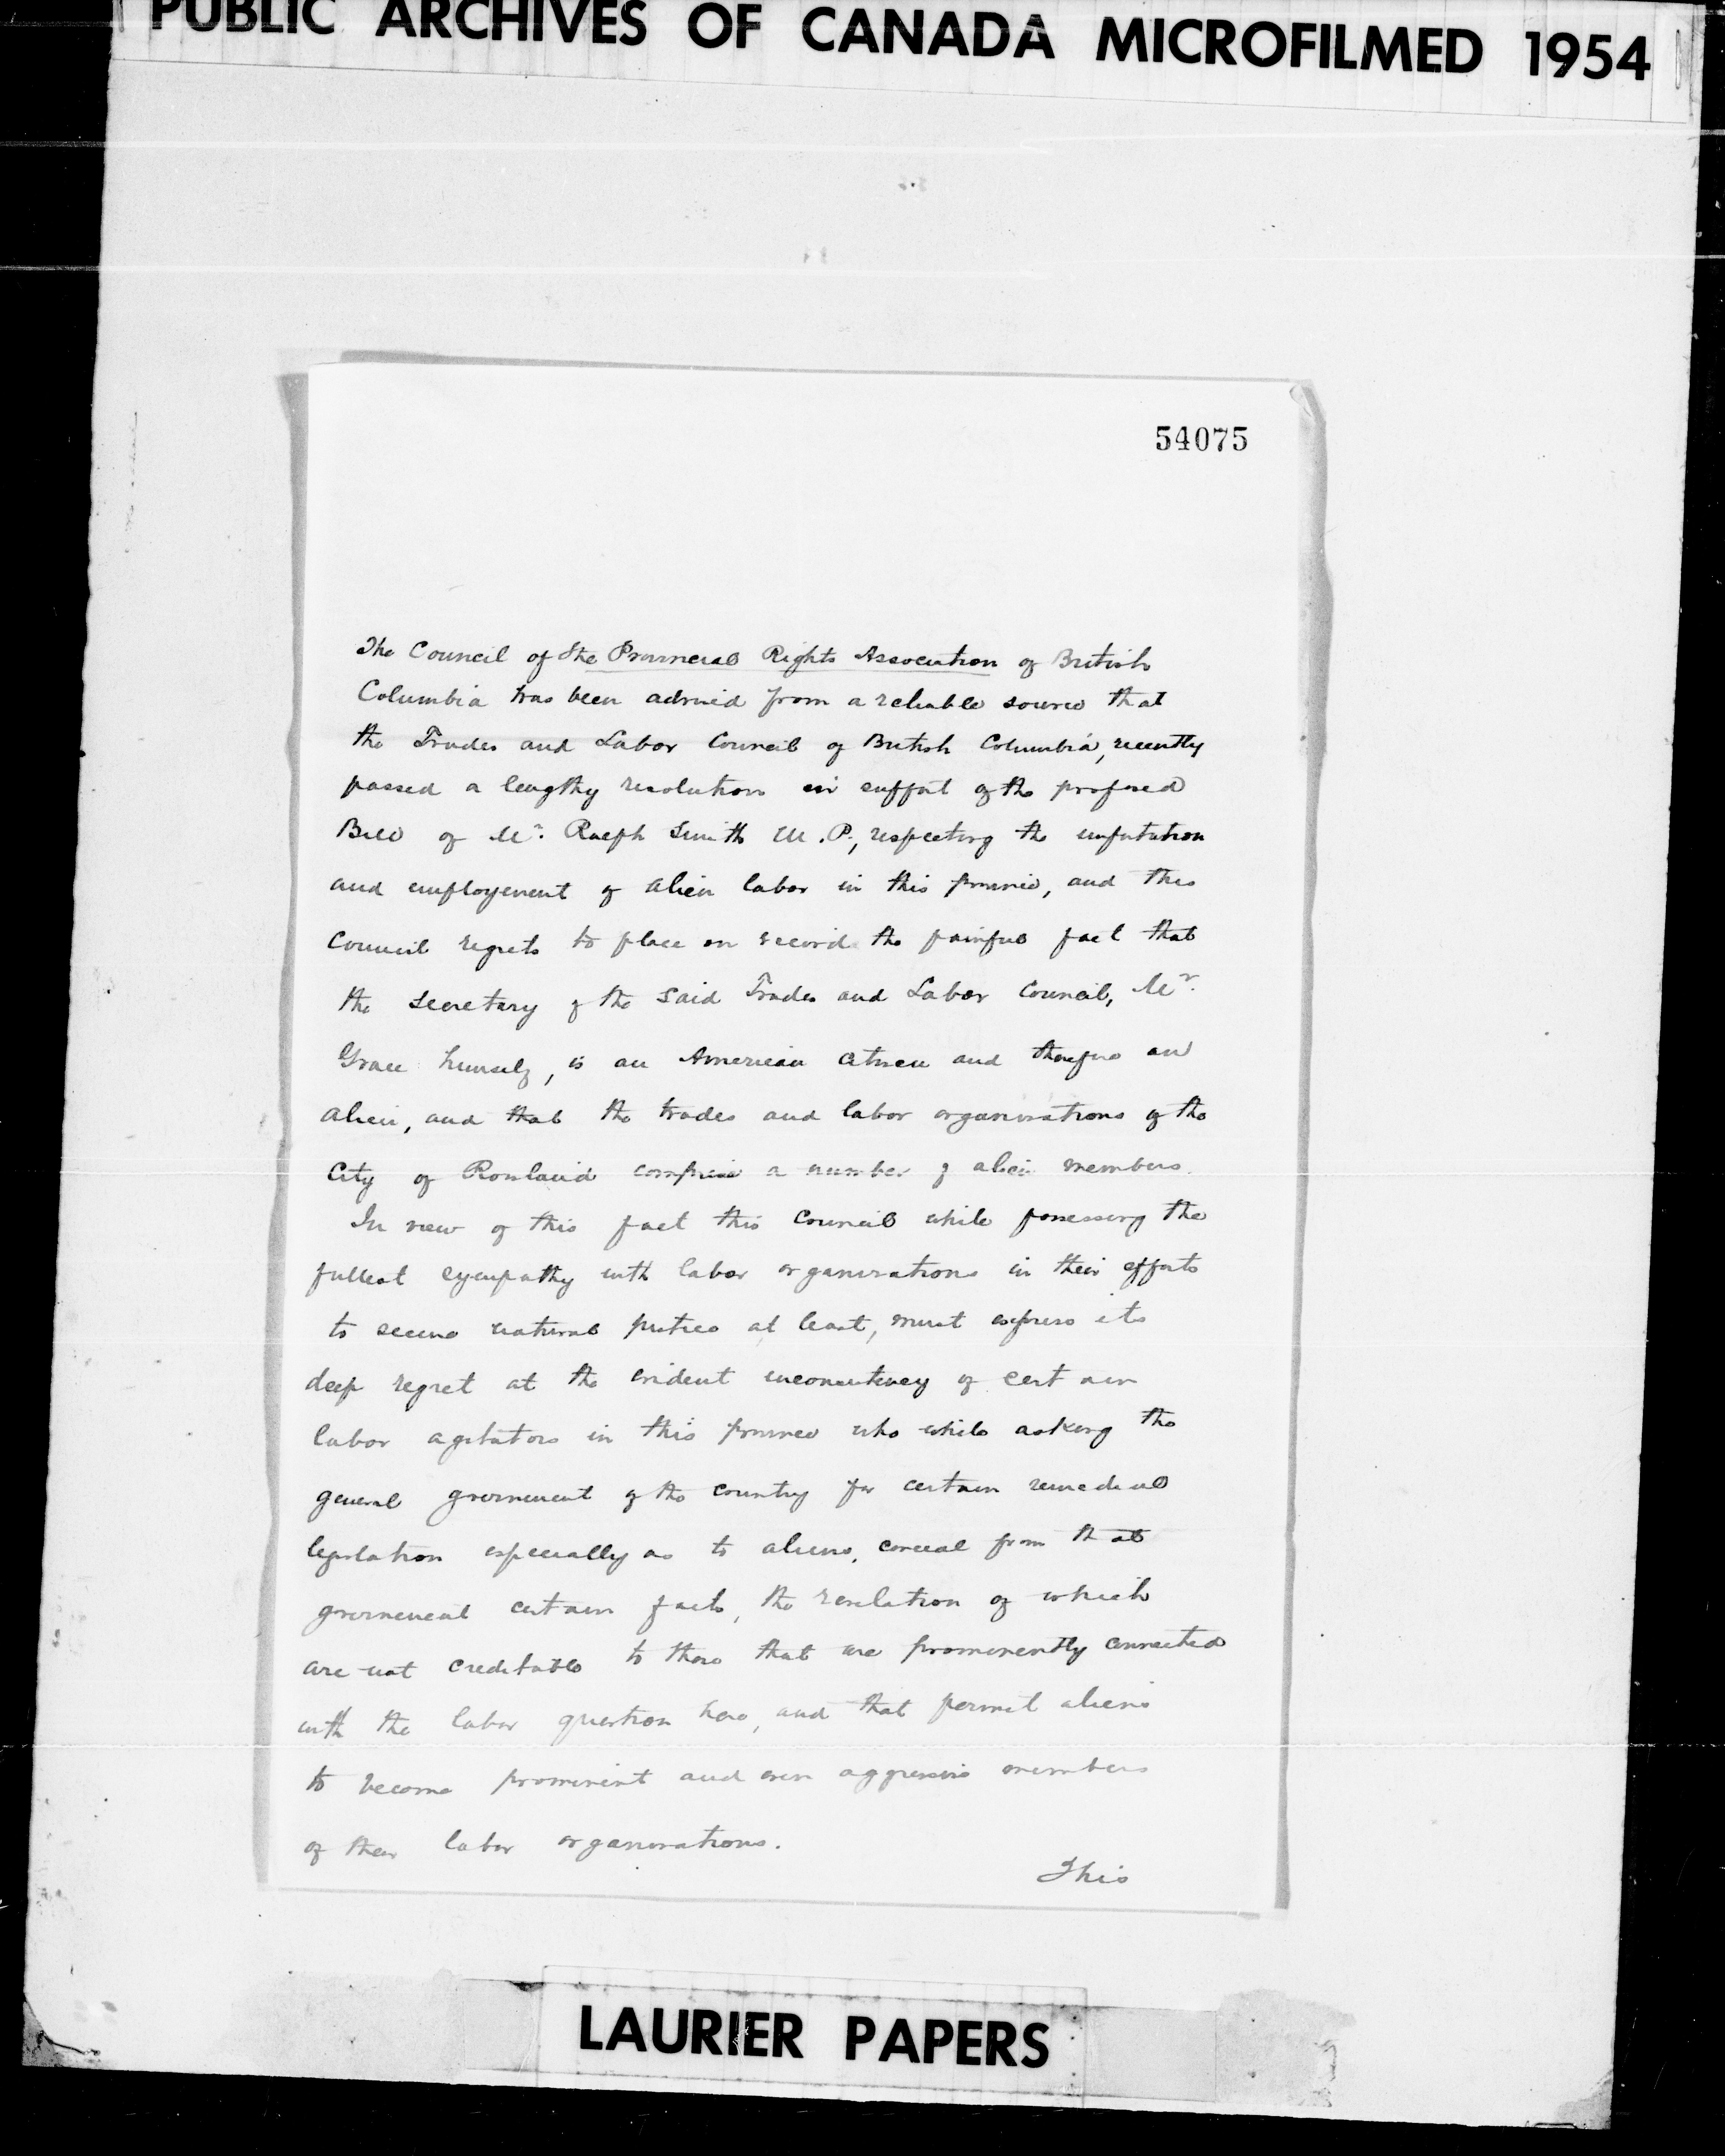 PUBLIC ARCHIVES OF CANADA MICROFILMED 1954
54075
The Council of the Provincial Rights Association of British
Columbia has been advised from a reliable source that
the Trades and Labor Council of British Columbia, recently
passed a lengthy resolution in support of the proposed
Bill of Mr. Ralph Smith M.P., respecting the importation
and employement of alien labor in this province, and this
Council regrets to place on record the painful fact that
the secretary of the said Trades and Labor Council, Mr.
Grace himself, is an American citizen and therefore an
alien, and that the trades and labor organizations of the
City of Rossland comprise a number of alien members.
In view of this fact this Council while possessing the
fullest sympathy with labor organizations in their efforts
to secure natural justice at least, must express its
deep regret at the evident inconsistency of certain
labor agitators in this province who while asking the
general government of the country for certain remedial
legislation especially as to aliens, conceal from that
government certain facts, the revelation of which
are not creditable to those that are prominently connected
with the labor question here, and that permit aliens
to become prominent and even aggressive members
of their labor organizations.
This
LAURIER PAPERS